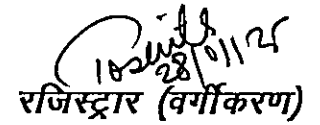 28/01/25
रजिस्ट्रार (वर्गीकरण)